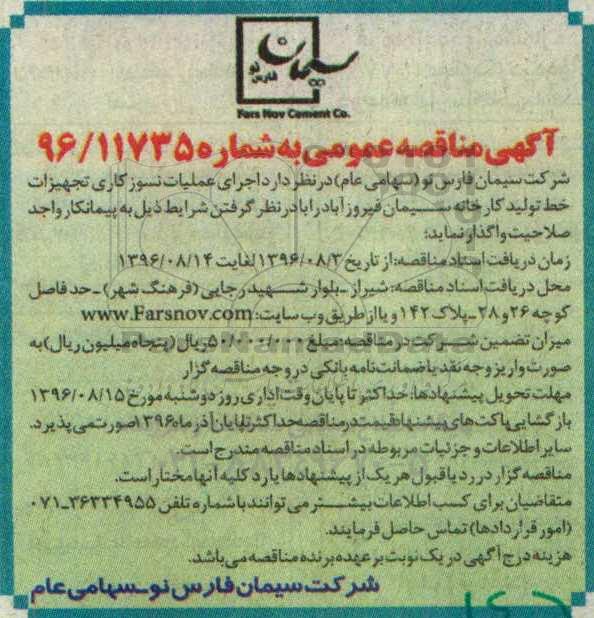 سیمان
فارس نو
Fars Nov Cement Co.
آگهی مناقصه عمومی به شماره ۹۶/۱۱۷۳۵
شرکت سیمان فارس نو (سهامی عام) در نظر دارد اجرای عملیات نسوز کاری تجهیزات
خط تولید کارخانه سیمان فیروز آباد را با در نظر گرفتن شرایط ذیل به پیمانکار واجد
صلاحیت واگذار نماید:
زمان دریافت اسناد مناقصه: از تاریخ ۱۳۹۶/۰۸/۳ لغایت ۱۳۹۶/۰۸/۱۴
محل دریافت اسناد مناقصه: شیراز ـ بلوار شهید رجایی (فرهنگ شهر) ـ حد فاصل
کوچه ۲۶ و ۲۸ ـ پلاک ۱۴۲ و یا از طریق وب سایت: www.Farsnov.com
میزان تضمین شرکت در مناقصه مبلغ ۵۰/۰۰۰/۰۰۰ ریال (پنجاه میلیون ریال) به
صورت واریز وجه نقد یا ضمانت نامه بانکی در وجه مناقصه گزار
مهلت تحویل پیشنهادها: حداکثر تا پایان وقت اداری روز دوشنبه مورخ ۱۳۹۶/۰۸/۱۵
بازگشایی پاکت‌های پیشنهاد قیمت در مناقصه حداکثر تا پایان آذر ماه ۱۳۹۶ صورت می پذیرد.
سایر اطلاعات و جزئیات مربوطه در اسناد مناقصه مندرج است.
مناقصه گزار در رد یا قبول هر یک از پیشنهادها یا رد کلیه آنها مختار است.
متقاضیان برای کسب اطلاعات بیشتر می توانند با شماره تلفن ۳۶۳۳۴۹۵۵-۰۷۱
(امور قراردادها) تماس حاصل فرمایند.
هزینه درج آگهی در یک نوبت بر عهده برنده مناقصه می باشد.
شرکت سیمان فارس نو ـ سهامی عام